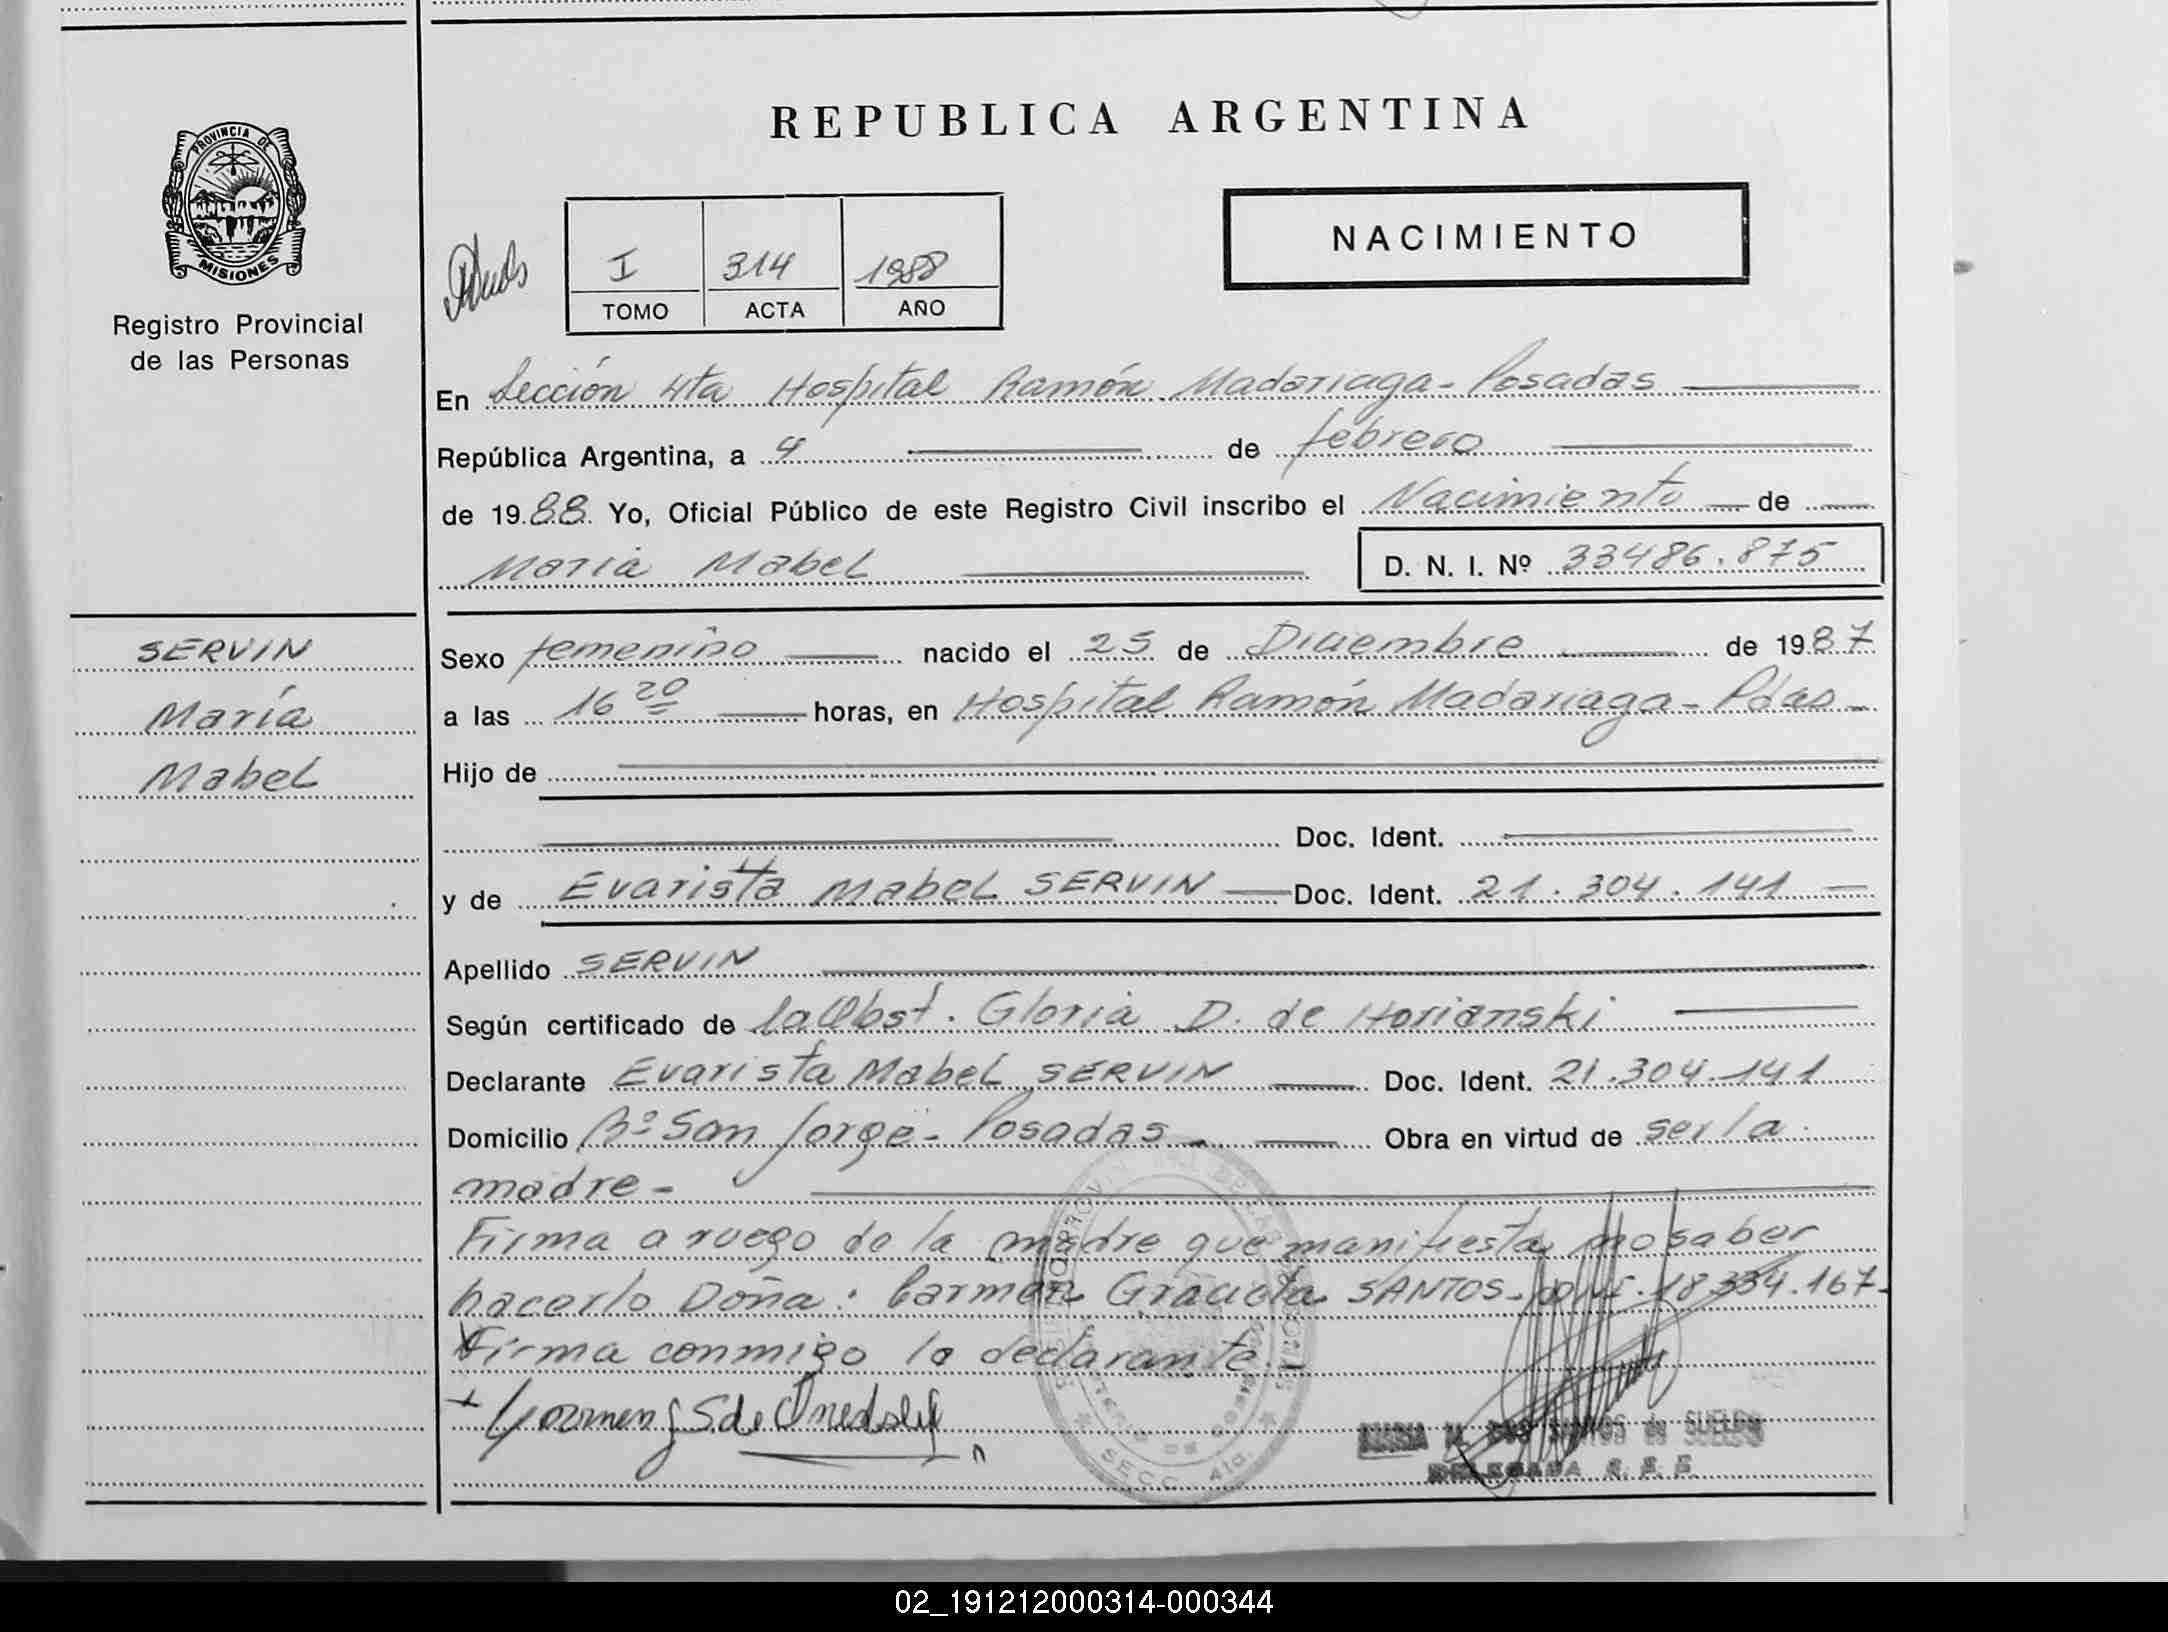 PROVINCIA DE
MISIONES
Registro Provincial
de las Personas
REPUBLICA ARGENTINA
NACIMIENTO
I 314 1988
TOMO ACTA AÑO
En Sección 4ta Hospital Ramón Madariaga - Posadas
República Argentina, a 4 de febrero
de 1988 Yo, Oficial Público de este Registro Civil inscribo el Nacimiento de
María Mabel D. N. I. Nº 33486.875
SERVIN
María
Mabel
Sexo femenino nacido el 25 de Diciembre de 1987
a las 16 20 horas, en Hospital Ramón Madariaga - Pdas -
Hijo de
Doc. Ident.
y de Evarista Mabel SERVIN Doc. Ident. 21.304.141
Apellido SERVIN
Según certificado de la Obst. Gloria D. de Horianski
Declarante Evarista Mabel SERVIN Doc. Ident. 21.304.141
Domicilio Bº San Jorge - Posadas Obra en virtud de ser la
madre -
Firma a ruego de la madre que manifiesta no saber
hacerlo Doña: Carmen Graciela SANTOS - D.N.I. 18.334.167 -
Firma conmigo la declarante.
SECC. 4ta.
SANTOS de SUELDO
DELEGADA
02_191212000314-000344